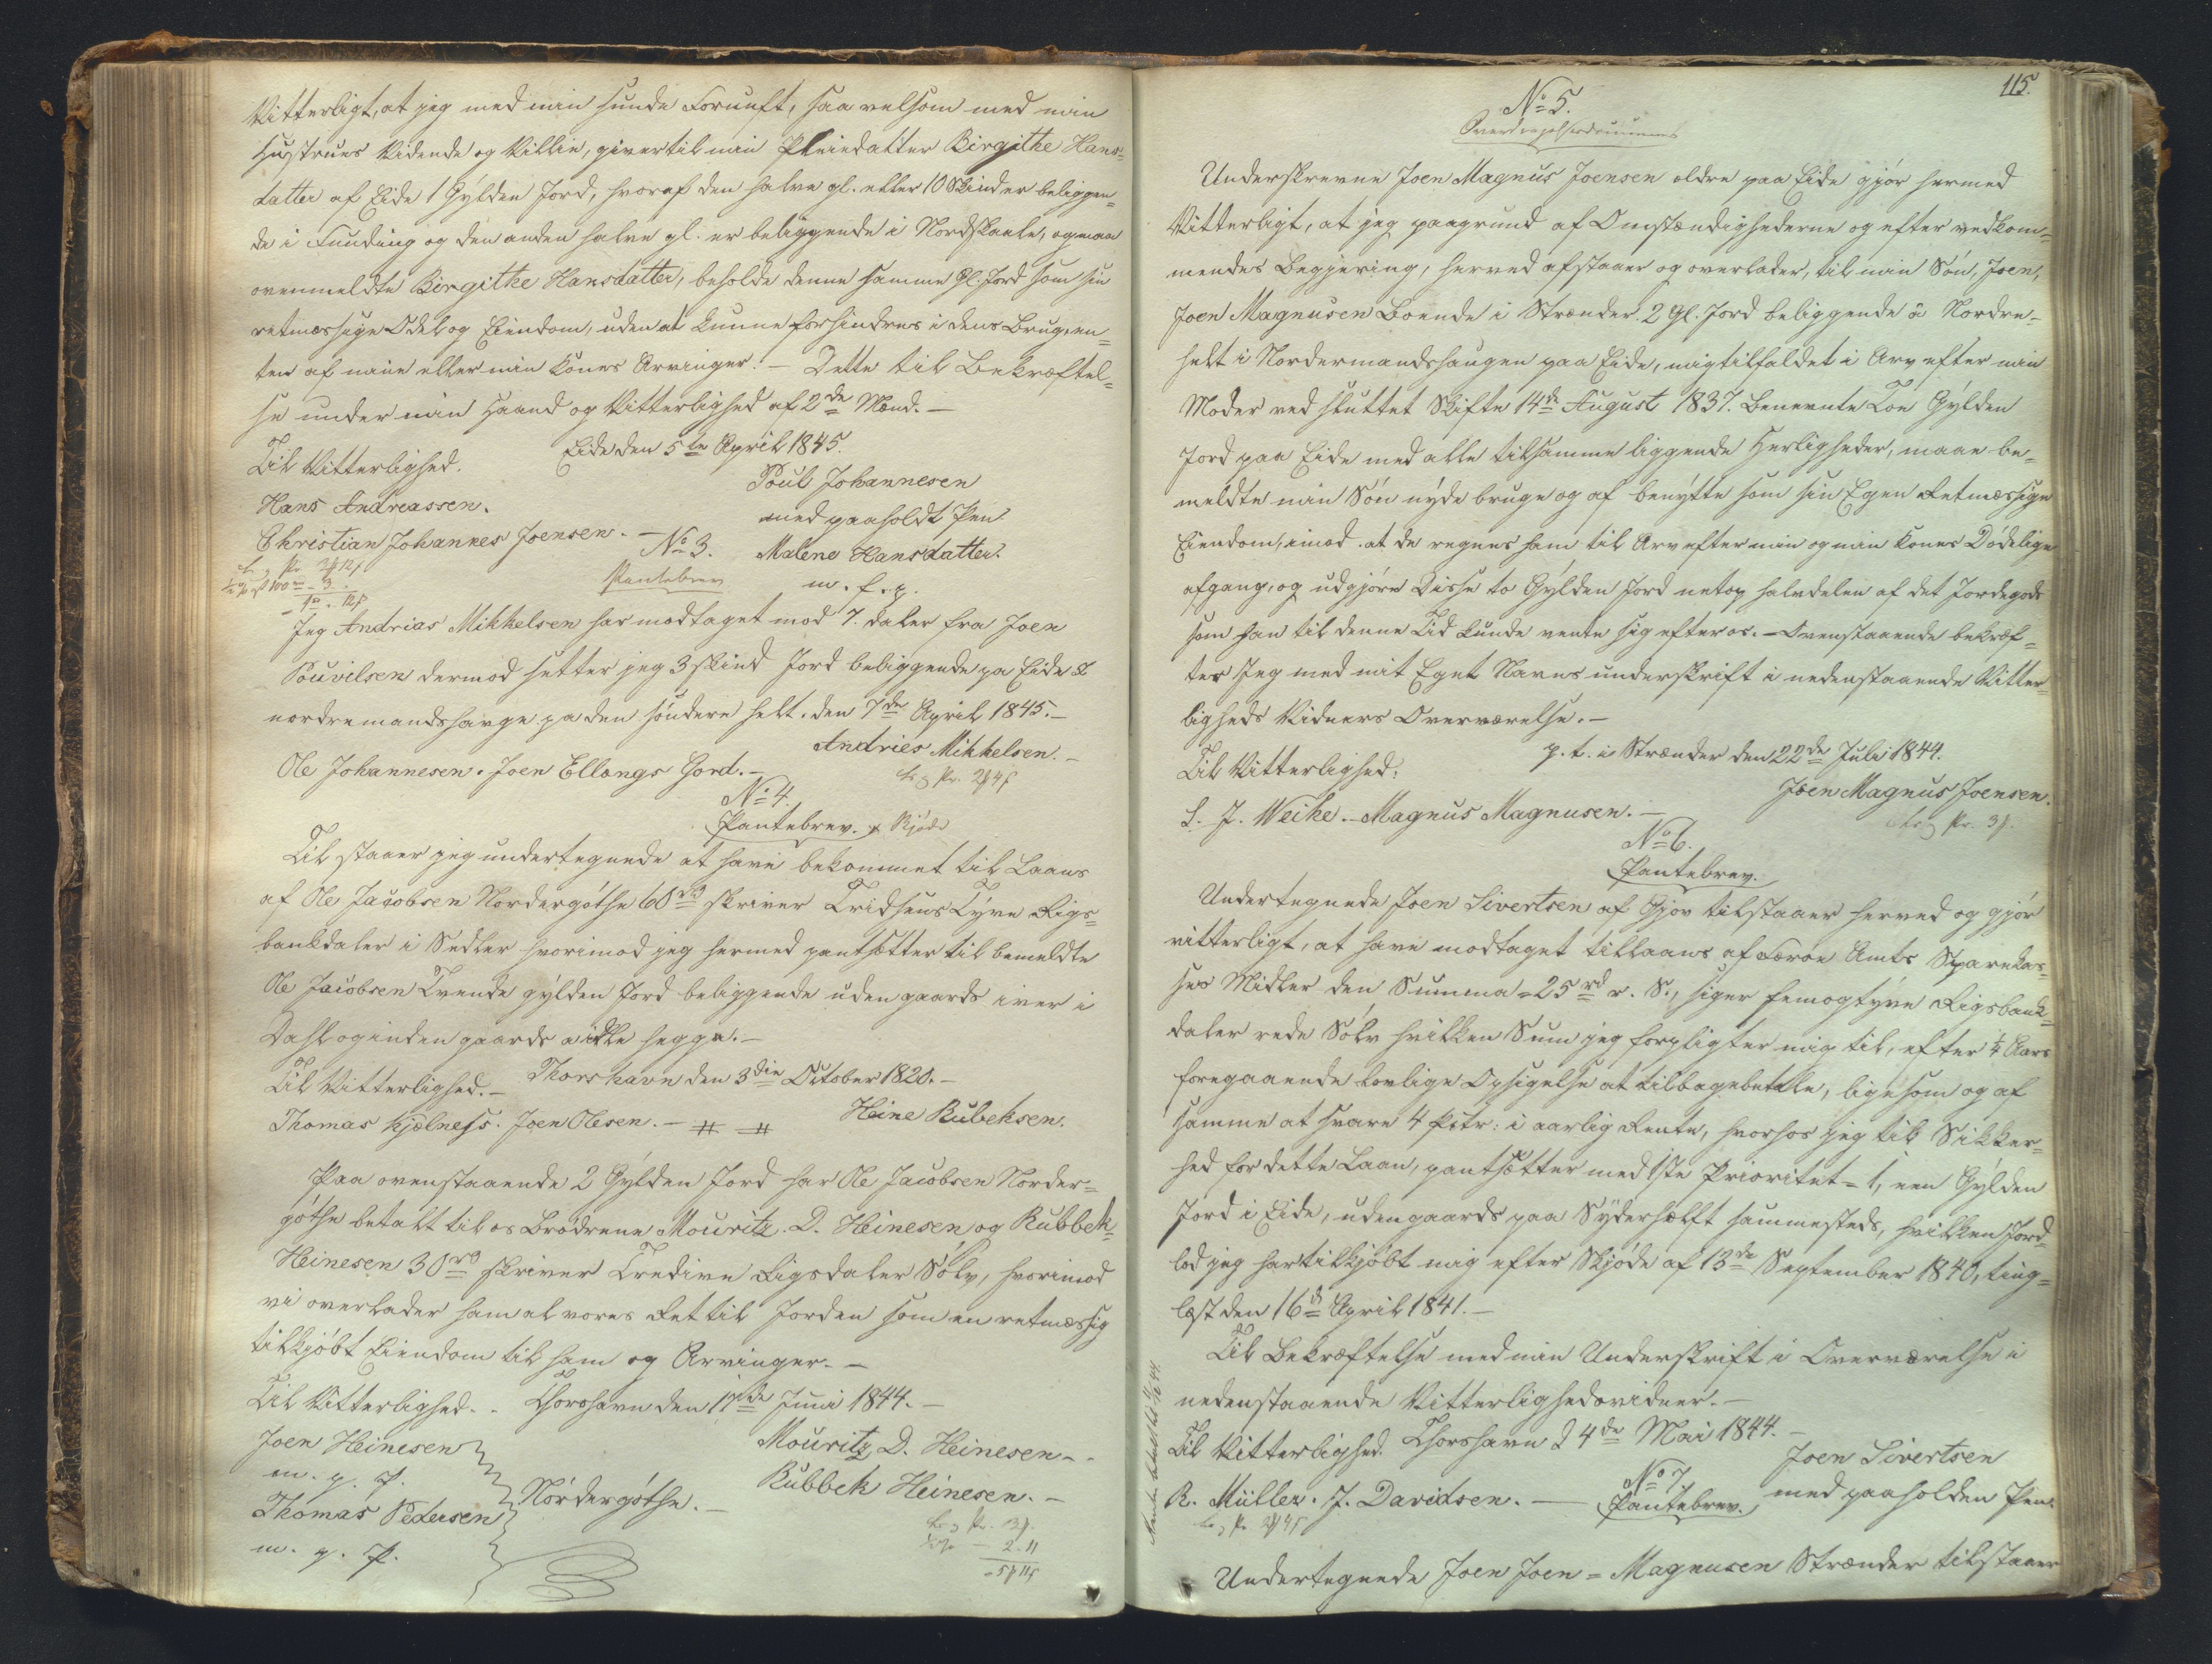 Vitterligt, at jeg med min sunde Fornuft, saa velsom med min
Hustrues Vidende og Villie, giver til min Pleiedatter Birgithe Hans=
datter af Eide 1 Gylden Jord, hvoraf den halve gl. eller 10 Skinder beliggen=
de i Funding og den anden halve gl. er beliggende i Nordskaale, og maa
ovenmeldte Birgithe Hansdatter, beholde denne samme Gl. Jord som sin
retmæssige Odel og Eiendom, uden at kunne forhindres i dens Brug, en=
ten af mine eller min Kones Arvinger. — Dette til Bekræftel=
se under min Haand og Vitterlighed af 2de Mænd. —
Eide den 5te April 1845.
Til Vitterlighed.
Poul Johannesen
Hans Andreassen.
med paaholdt Pen
Christian Johannes Joensen. —
Malene Hansdatter.
m. f. p.
No 3.
Pantebrev
Jeg Andrias Mikkelsen har modtaget mod 7. daler fra Joen
Pouvilsen dermod setter jeg 3 skind Jord beliggende pa Eide I
nordremandshavge pa den söndere helt. den 7de April 1845. —
Andries Mikkelsen. —
Ole Johannesen. Joen Ellangs Gord. —
No 4.
Pantebrev. & Skjöde
Til staaer jeg undertegnede at have bekommet til Laans
af Ole Jacobsen Nordergöthe 60 rd skriver Tridsens Tyve Rigs=
bankdaler i Sedler hvorimod jeg hermed pantsætter til bemeldte
Ole Jacobsen Tvende gylden Jord beliggende uden gaards iver i
Dahl og inden gaards a idtle heggn. —
Thorshavn den 3die October 1820. —
Til Vitterlighed. —
Heine Rubeksen.
Thomas Kjælness. Joen Olesen. —
Paa ovenstaaende 2 Gylden Jord har Ole Jacobsen Norder=
göthe betalt til os Brödrene Mouritz. D. Heinesen og Rubbek
Heinesen 30 rd skriver Tredive Rigsdaler Sölv, hvorimod
vi overlader ham al vores Ret til Jorden som en retmæssig
tilkjöbt Eiendom til ham og Arvinger. —
Til Vitterlighed. - Thorshavn den 17de Juni 1844. —
Joen Heinesen
m. p. P.
Thomas Pedersen
m. p. P.
Nördergöthe. —
Mouritz D. Heinesen -
Rubbek Heinesen. —
115.
No 5.
Overdragelsesdocument
Underskrevne Joen Magnus Joensen ældre paa Eide gjör hermed
Vitterligt, at jeg paagrund af Omstændighederne og efter vedkom=
mendes Begjering, herved afstaaer og overlader, til min Sön, Joen,
Joen Magnusen Boende i Strænder 2 Gl. Jord beliggende á Nordre-
helt i Nordermandshaugen paa Eide, mig tilfaldet i Arv efter min
Moder ved sluttet Skifte 14de August 1837. Benevnte Toe Gylden
Jord paa Eide med alle tilsamme liggende Herligheder, maae be=
meldte min Sön nyde bruge og af benytte som sin Egen Retmæssige
Eiendom, imod at de regnes ham til Arv efter min og min Kones Dödelige
afgang, og udgjöre Disse to Gylden Jord netop halvdelen af det Jordegods
som han til denne Tid kunde vente sig efter os. — Ovenstaaende bekræf=
tes Jeg med mit Eget Navns underskrift i nedenstaaende Vitter=
ligheds Vidners Overværelse. —
p. t. i Strænder den 22de Juli 1844.
Til Vitterlighed:
Joen Magnus Joensen.
S. J. Weihe. — Magnus Magnusen. —
No 6.
Pantebrev.
Undertegnede Joen Sivertsen af Gjov tilstaaer herved og gjör
vitterligt, at have modtaget tillaans af Færöe Amts Sparekas=
ses Midler den Summa = 25 rd r. S., siger femogtyve Rigsbank=
daler rede Sölv hvilken Sum jeg forpligter mig til, efter ¼ Aars
foregaaende lovlige Opsigelse at tilbagebetale, ligesom og af
samme at svare 4 Pctr: i aarlig Rente, hvorhos jeg til Sikker=
hed for dette Laan, pantsætter med 1ste Prioritet = 1, een Gylden
Jord i Eide, udengaards paa Syderhelft sammesteds, hvilken Jord=
lod jeg har tilkjöbt mig efter Skjöde af 13de September 1840, ting=
læst den 16de April 1841. —
Til Bekræftelse med min Underskrift i Overværelse i
nedenstaaende Vitterlighedsvidner. —
Til Vitterlighed. Thorshavn d 4de Mai 1844. —
Joen Sivertsen
R. Müller. J. Davidsen. —
med paaholden Pen.
No 7.
Pantebrev.
Undertegnede Joen Joen = Magnusen Strænder tilstaaer